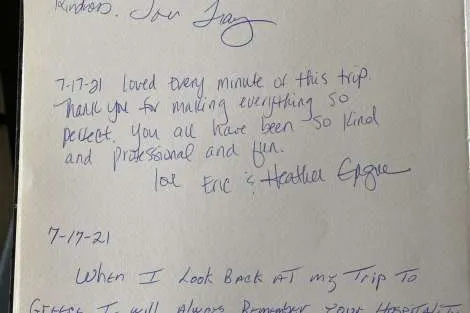 Kindness.
7-17-21 Loved Every minute of this trip.
Thank you for making everything so
perfect. You all have been so kind
and professional and fun.
Eric & Heather
7-17-21
When I Look Back AT my Trip To
Greece I will Always Remember Your Hospitality